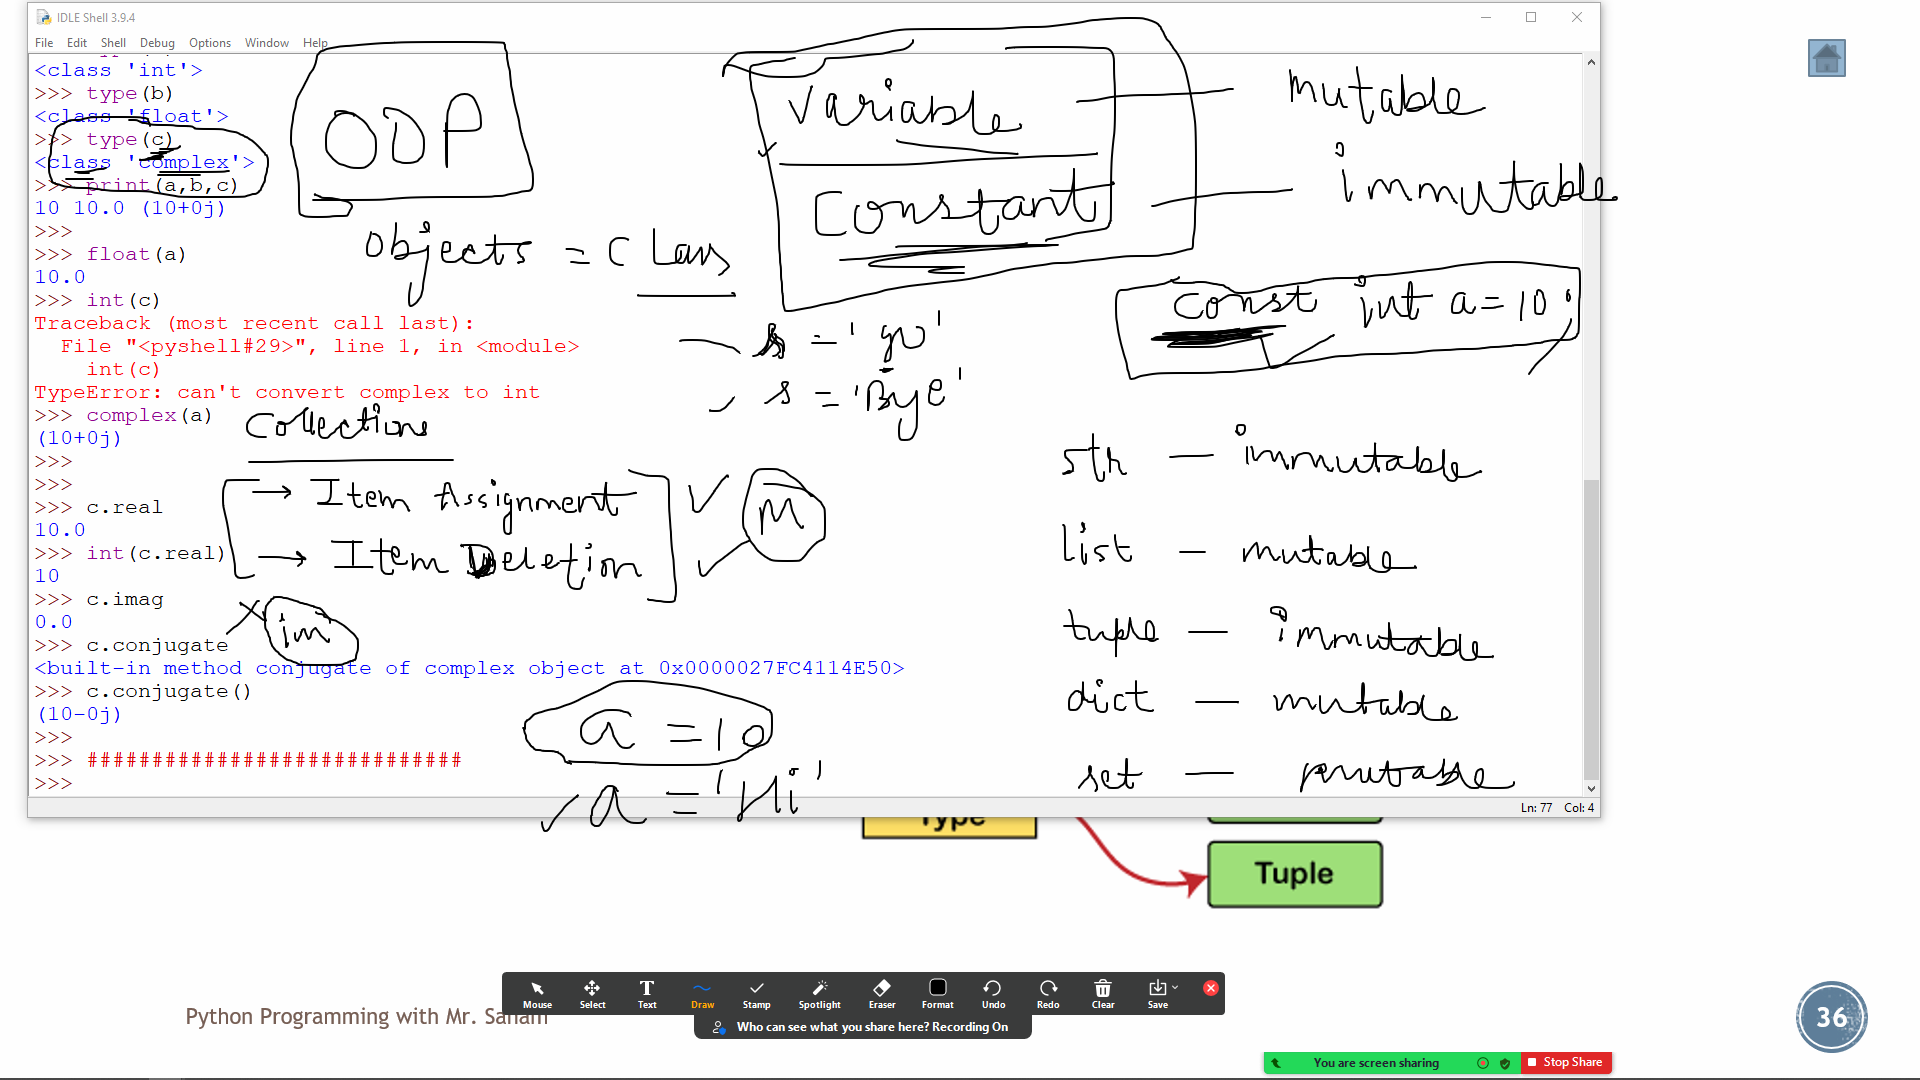 IDLE Shell 3.9.4
File Edit Shell Debug Options Window Help
<class 'int'>
>>> type(b)
<class 'float'>
>>> type(c)
<class 'complex'>
>>> print(a,b,c)
10 10.0 (10+0j)
>>>
>>> float(a)
10.0
>>> int(c)
Traceback (most recent call last):
  File "<pyshell#29>", line 1, in <module>
    int(c)
TypeError: can't convert complex to int
>>> complex(a)
(10+0j)
>>>
>>>
>>> c.real
10.0
>>> int(c.real)
10
>>> c.imag
0.0
>>> c.conjugate
<built-in method conjugate of complex object at 0x0000027FC4114E50>
>>> c.conjugate()
(10-0j)
>>>
>>> #############################
>>>
OOP
objects = class
Variable — mutable
Constant — immutable
const int a = 10;
s = 'go'
s = 'Bye'
Collections
→ Item Assignment ✓
→ Item Deletion ✓
m
im
a = 10
✓ a = 'Hi'
str — immutable
list — mutable
tuple — immutable
dict — mutable
set — mutable
Ln: 77 Col: 4
Type
Tuple
Mouse Select Text Draw Stamp Spotlight Eraser Format Undo Redo Clear Save
Who can see what you share here? Recording On
Python Programming with Mr. Sanam
36
You are screen sharing Stop Share